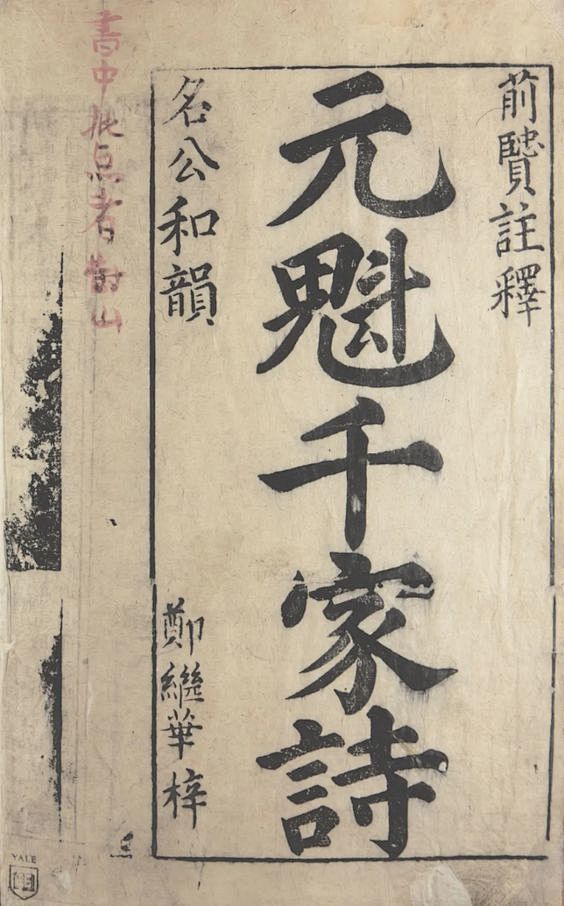 前賢註釋
元魁千家詩
名公和韻
鄭繼華梓
書中批点者對山
YALE